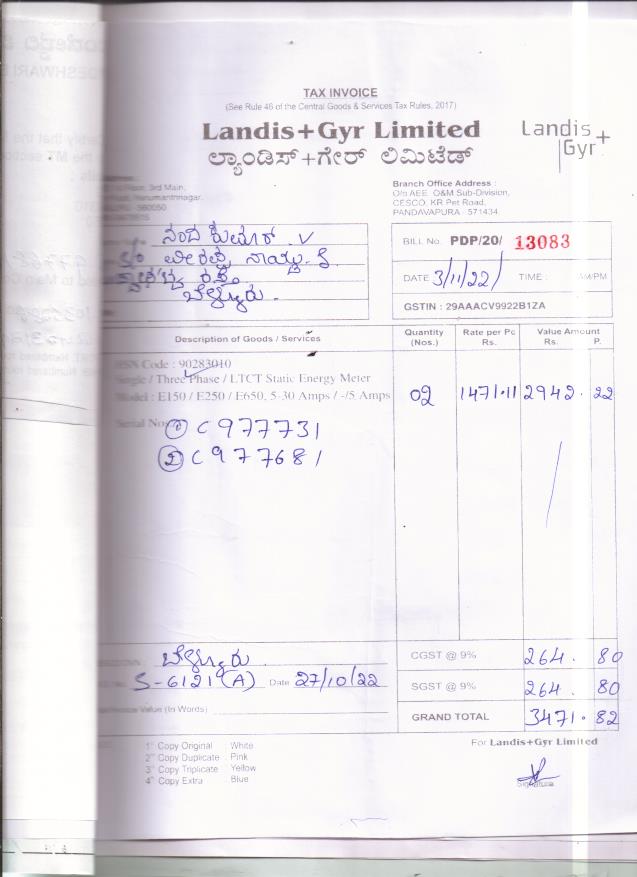 TAX INVOICE
(See Rule 46 of the Central Goods & Services Tax Rules, 2017)
Landis+Gyr Limited
ಲ್ಯಾಂಡಿಸ್+ಗೇರ್ ಲಿಮಿಟೆಡ್
Landis+
Gyr
3rd Main,
Hanumanthnagar,
560050
Branch Office Address :
O/o AEE. O&M Sub-Division,
CESCO, KR Pet Road,
PANDAVAPURA : 571434
V
ಬೆಳ್ಳೂರು.
BILL No. PDP/20/ 13083
DATE 3/11/22/ TIME : AM/PM
GSTIN : 29AAACV9922B1ZA
Description of Goods / Services Quantity (Nos.) Rate per Pc Rs. Value Amount Rs. P.
HSN Code : 90283010
Single / Three Phase / LTCT Static Energy Meter
Model : E150 / E250 / E650, 5-30 Amps / -/5 Amps 02 1471.11 2942. 22
Serial Nos
① C977731
② C977681
ಬೆಳ್ಳೂರು CGST @ 9% 264. 80
S-6121(A) Date 27/10/22 SGST @ 9% 264. 80
Value (In Words) GRAND TOTAL 3471.82
1st Copy Original : White
2nd Copy Duplicate : Pink
3rd Copy Triplicate : Yellow
4th Copy Extra : Blue
For Landis+Gyr Limited
Signature